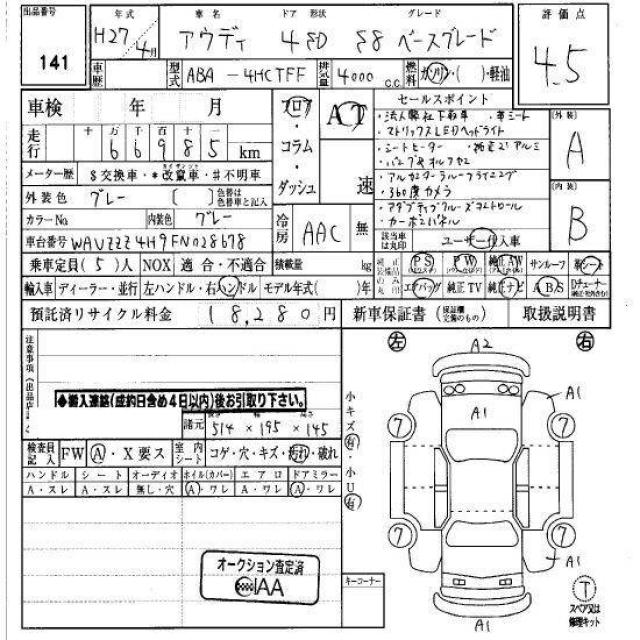 出品番号
141
年式 車名 ドア 形状 グレード
H27/4月 アウディ 4SD S8 ベースグレード
評価点
4.5
車歴 型式 ABA-4HCTFF 排気量 4000 C.C. 燃料 ガソリン・( )・軽油
車検 年 月
フロア・コラム・ダッシュ
AT
速
セールスポイント
・法人 ・革シート
・マトリックスLEDヘッドライト
・シートヒーター ・純正21アルミ
・360度カメラ
・カーボンパネル
外装
A
内装
B
走行 十 万 千 百 十
66985 km
メーター歴 $交換車・*改竄車・#不明車
外装色 グレー [ ] 色替は色替車と記入
カラーNo 内装色 グレー
冷房 AAC 無
該当車は丸印 ユーザー買入車
車台番号 WAUZZZ4H9FN028678
乗車定員(5)人 NOX 適合・不適合 積載量 kg
純正装備品のみ丸印 PS PW 純正AW サンルーフ 革シート
エアバッグ 純正TV 純正ナビ ABS Dチューナー
輸入車 ディーラー・並行 左ハンドル・右ハンドル モデル年式( )年
預託済リサイクル料金 18,280円 新車保証書 (保証欄交換のもの) 取扱説明書
注意事項(出品店
◆搬入連絡(成約日含め4日以内)後お引取り下さい。
諸元 514×195×145
検査員記入 FW A・X要ス 室内シート コゲ・穴・キズ・汚れ・破れ
ハンドル シート オーディオ ホイル(カバー) エアロ ドアミラー
A・スレ A・スレ 無し・穴 A・ワレ A・ワレ A・ワレ
オークション査定済
IAA
小キズ有・小U有
キーコーナー
左 右
A2
A1
A1
7 7
7 7
A1
A1
T
スペア又は修理キット